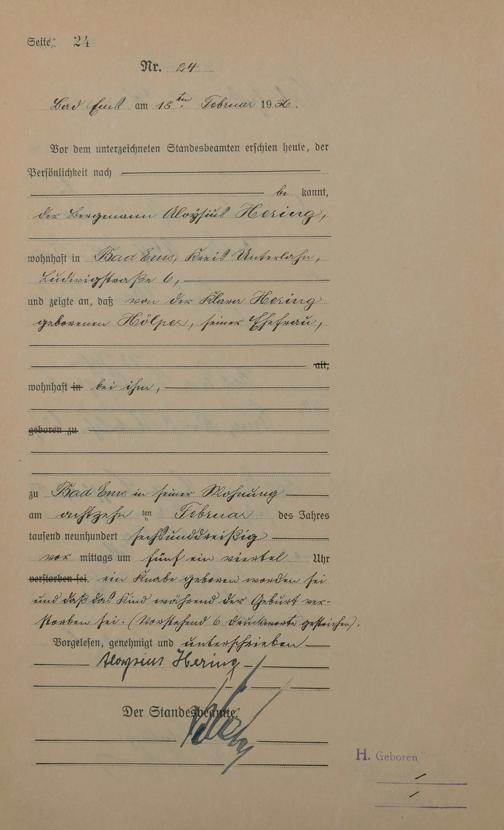 Seite 24
Nr. 24
Bad Ems am 18ten Februar 1936.
Vor dem unterzeichneten Standesbeamten erschien heute, der
Persönlichkeit nach
be kannt,
der Bergmann Aloysius Hering,
wohnhaft in Bad Ems, Kreis Unterlahn,
Ludwigstraße 6,
und zeigte an, daß von der Klara Hering
geborenen Hölper, seiner Ehefrau,
alt,
wohnhaft in bei ihm,
geboren zu
zu Bad Ems in seiner Wohnung
am achtzehn ten Februar des Jahres
tausend neunhundert sechsunddreißig
vor mittags um fünf ein viertel Uhr
verstorben sei. ein Knabe geboren worden sei
und daß das Kind während der Geburt ver-
storben sei. (Vorstehend 6 Druckworte gestrichen).
Vorgelesen, genehmigt und unterschrieben
Aloysius Hering
Der Standesbeamte
H. Geboren